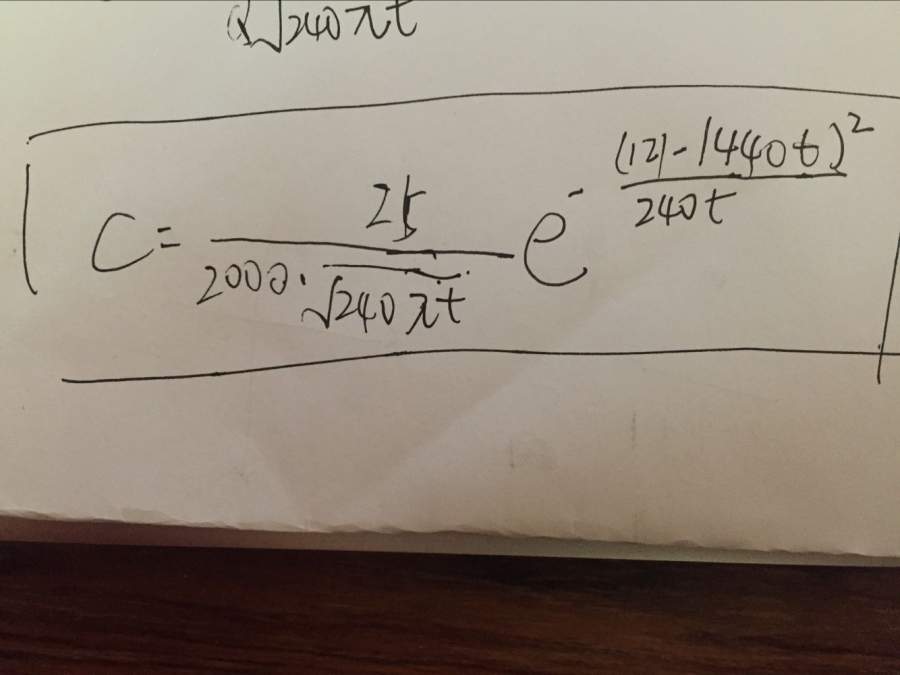 √240πt
C = 25 / (2000·√240πt) e^-((12)-1440t)²/240t